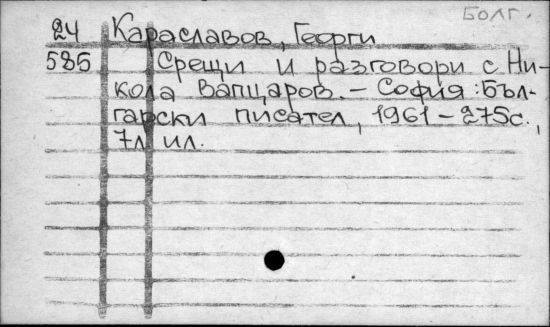 Болг.
24 Караславов, Георги
585 Срещи и разговори с Ни-
кола Вапцаров. – София : Бъл-
гарски писател, 1961 – 275с.,
7л ил.